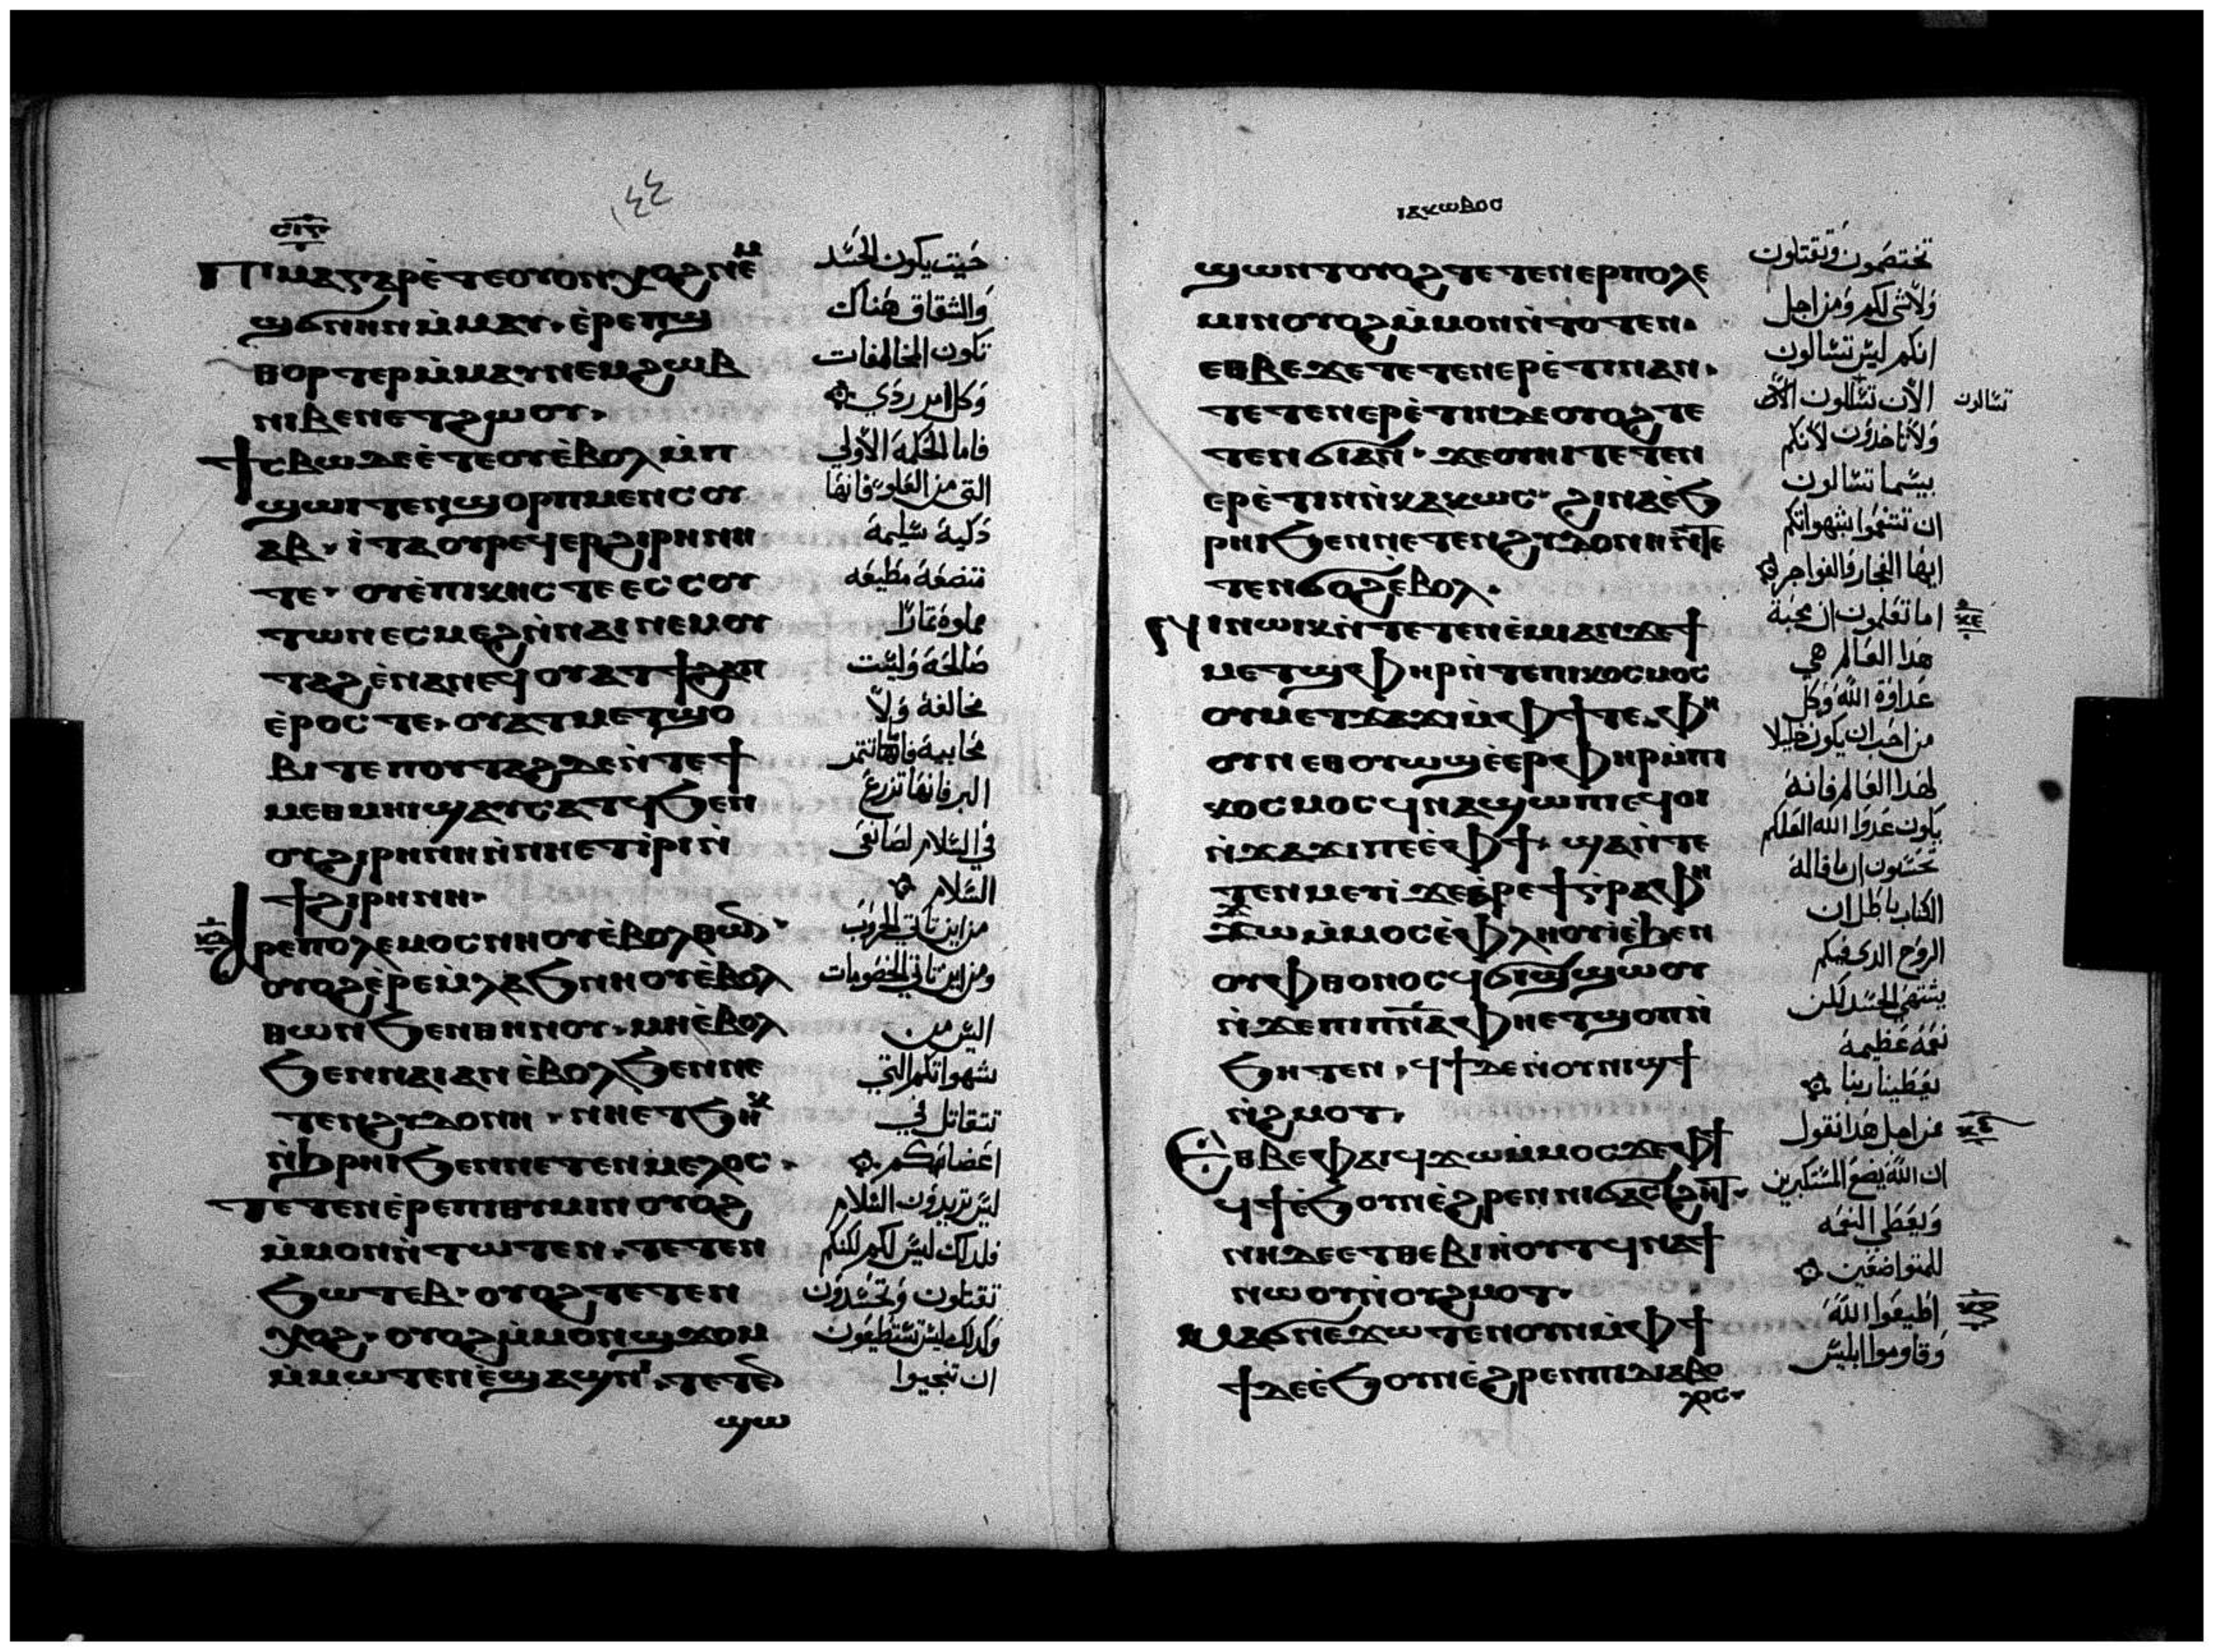 ⲡⲓⲙⲁⲅⲁⲣⲉ̀ⲧⲉⲟⲩⲟⲛⲭⲟϩⲛⲉⲙ
ϣϭⲛⲏⲛⲙ̀ⲙⲁⲩ· ⲉ̀ⲣⲉⲡϣ
ⲑⲟⲣⲧⲉⲣⲙ̀ⲙⲁⲩⲛⲉⲙϩⲱⲃ
ⲛⲓⲃⲉⲛⲉⲧϩⲱⲟⲩ·
ϯⲥⲃⲱⲇⲉⲉ̀ⲧⲉⲟⲩⲉ̀ⲃⲟⲗⲙ̀ⲡ
ϣⲱⲓⲧⲉⲛϣⲟⲣⲡⲙⲉⲛⲥⲟⲩ
ⲁⲃ· ⲓⲧⲁⲟⲩⲣⲉϥⲉⲣϩⲓⲣⲏⲛⲏ
ⲧⲉ· ⲟⲩⲉ̀ⲡⲓⲕⲏⲥⲧⲉⲉⲥⲥⲟⲩ
ⲧⲱⲛⲉⲥⲙⲉϩⲛ̀ⲛⲁⲓⲛⲉⲙⲟⲩ
ⲧⲁϩⲉ̀ⲛⲁⲛⲉϥⲟⲩⲁⲧϯϩⲁⲡ
ⲉ̀ⲣⲟⲥⲧⲉ· ⲟⲩⲁⲧⲙⲉⲧϣⲟ
ⲃⲓⲧⲉⲡⲟⲩⲧⲁϩⲇⲉⲛ̀ⲧⲉϯ
ⲙⲉⲑⲙⲏⲓϣⲁⲩⲥⲁⲧϥϧⲉⲛ
ⲟⲩϩⲓⲣⲏⲛⲏⲛ̀ⲛⲏⲉⲧⲓ̀ⲣⲓⲛ̀
ϯϩⲓⲣⲏⲛⲏ·
ⲁⲣⲉⲡⲟⲗⲉⲙⲟⲥⲛⲏⲟⲩⲉ̀ⲃⲟⲗⲑⲱⲛ·
ⲟⲩⲟϩⲉ̀ⲣⲉⲙ̀ⲗⲁϧⲛⲏⲟⲩⲉ̀ⲃⲟⲗ
ⲑⲱⲛϧⲉⲛⲑⲏⲛⲟⲩ· ⲙⲏⲉ̀ⲃⲟⲗ
ϧⲉⲛⲛⲁⲓⲁⲛⲉ̀ⲃⲟⲗϧⲉⲛⲛⲉ
ⲧⲉⲛϩⲩⲇⲟⲛⲏ· ⲛⲏⲉⲧϧⲏⲕ
ⲛ̀ϧⲣⲏⲓϧⲉⲛⲛⲉⲧⲉⲛⲙⲉⲗⲟⲥ·
ⲧⲉⲧⲉⲛⲉ̀ⲣⲉⲡⲓⲑⲩⲙⲓⲛⲟⲩⲟϩ
ⲙ̀ⲙⲟⲛⲛ̀ⲧⲱⲧⲉⲛ· ⲧⲉⲧⲉⲛ
ϧⲱⲧⲉⲃ· ⲟⲩⲟϩⲧⲉⲧⲉⲛ
ⲭⲟϩ· ⲟⲩⲟϩⲙ̀ⲙⲟⲛϣϫⲟⲙ
ⲙ̀ⲙⲱⲧⲉⲛⲉ̀ϣⲁϣⲛⲓ· ⲧⲉⲧⲉⲛ
ϣⲱ
١٤٤
حيث يكون الحسد
والشقاق هناك
تكون المخالفات
وكل امر ردي
فاما الحكمة الاولي
التي من العلو فانها
دكية سليمة
متضعة مطيعه
مملوة ثمارًا
صالحة وليست
مخالفة ولا
محابية فانها تثمر
البر فانها تزرع
في السلام لصانعى
السلام
من اين تاتي الحروب
ومن اين تاتي الخصومات
اليس من
شهواتكم التي
تتقاتل في
اعضايكم
ليس تريدون السلام
فلدلك ليس لكم لكنكم
تقتلون وتحسدون
وكدلك ليس تستطيعون
ان تنجيوا
ⲓⲁⲕⲱⲃⲟⲥ
ϣⲱⲛⲧⲟⲩⲟϩⲧⲉⲧⲉⲛⲉⲣⲡⲟⲗⲉ
ⲙⲓⲛⲟⲩⲟϩⲙ̀ⲙⲟⲛⲛ̀ⲧⲟⲧⲉⲛ·
ⲉⲑⲃⲉϫⲉⲧⲉⲧⲉⲛⲉⲣⲉ̀ⲧⲓⲛⲁⲛ·
ⲧⲉⲧⲉⲛⲉⲣⲉ̀ⲧⲓⲛⲇⲉⲟⲩⲟϩⲧⲉ
ⲧⲉⲛϭⲓⲁⲛ· ϫⲉⲟⲩⲏⲓⲧⲉⲧⲉⲛ
ⲉⲣⲉ̀ⲧⲓⲛⲛ̀ⲕⲁⲕⲱⲥ· ϩⲓⲛⲁⲉ̀ϧ
ⲣⲏⲓϧⲉⲛⲛⲉⲧⲉⲛϩⲩⲇⲟⲛⲏⲛ̀ⲧⲉ
ⲧⲉⲛϭⲟϩⲉ̀ⲃⲟⲗ·
ⲛⲓⲛⲱⲓⲕⲛ̀ⲧⲉⲧⲉⲛⲉ̀ⲙⲓⲁⲛϫⲉϯ
ⲙⲉⲧϣⲫⲏⲣⲛ̀ⲧⲉⲡⲓⲕⲟⲥⲙⲟⲥ
ⲟⲩⲙⲉⲧϫⲁϫⲓⲙ̀ⲫϯⲧⲉ· ⲫⲏ
ⲟⲩⲛⲉⲑⲟⲩⲱϣⲉ̀ⲉⲣⲫⲏⲣⲙ̀ⲡⲓ
ⲕⲟⲥⲙⲟⲥϥⲛⲁϣⲱⲡⲓⲉϥⲟⲓ
ⲛ̀ϫⲁϫⲓⲡⲉⲉ̀ⲫϯ· ϣⲁⲛ̀ⲧⲉ
ⲧⲉⲛⲙⲉⲩⲓ̀ϫⲉⲉ̀ⲣⲉϯⲅⲣⲁⲫⲏ
ϫⲱⲙ̀ⲙⲟⲥⲉ̀ⲫⲗⲏⲟⲩⲓ̀ⲉ̀ϧⲉⲛ
ⲟⲩⲫⲑⲟⲛⲟⲥϥϭⲓϣϣⲱⲟⲩ
ⲛ̀ϫⲉⲡⲓⲡⲛ̅ⲁ̅ⲫⲏⲉⲧϣⲟⲡⲛ̀
ϧⲏⲧⲉⲛ· ϥϯⲇⲉⲛ̀ⲟⲩⲛⲓϣϯ
ⲛ̀ϩⲙⲟⲧ·
ⲉⲑⲃⲉⲫⲁⲓϥϫⲱⲙ̀ⲙⲟⲥϫⲉⲫϯ
ϥϯⲉ̀ϧⲟⲩⲛⲉ̀ϩⲣⲉⲛⲛⲓϭⲁⲥⲓϩⲏⲧ·
ⲛⲏⲇⲉⲉⲧⲑⲉⲃⲓⲏ̀ⲟⲩⲧϥⲛⲁϯ
ⲛⲱⲟⲩⲛ̀ⲟⲩϩⲙⲟⲧ·
ⲙⲁϭⲛⲉϫⲱⲧⲉⲛⲟⲩⲛⲙ̀ⲫϯ
ϯⲇⲉⲉ̀ϧⲟⲩⲛⲉ̀ϩⲣⲉⲛⲡⲓⲇⲓⲁⲃⲟ
ⲗⲟⲥ·
تختصمون وتقتلون
ولا شي لكم ومن اجل
انكم ليس تسالون
الان تسالون
تسالون
ولا تاخدون لانكم
بيسما تسالون
ان تتنعموا بشهواتكم
ايها الفجار والفواجر
اما تعلمون ان محبة
هدا العالم هي
عداوة الله وكل
من احب ان يكون خليلا
لهدا العالم فانه
يكون عدوا لله العلكم
تحسبون ان ما قاله
الكتاب باطل ان
الروح الدى فيكم
يشتهي الحسد لكن
نعمة عظيمة
يعطينا ربنا
من اجل هدا نقول
ان الله يضع المستكبرين
ويعطى النعمه
للمتواضعين
اطيعوا الله
وقاوموا ابليس